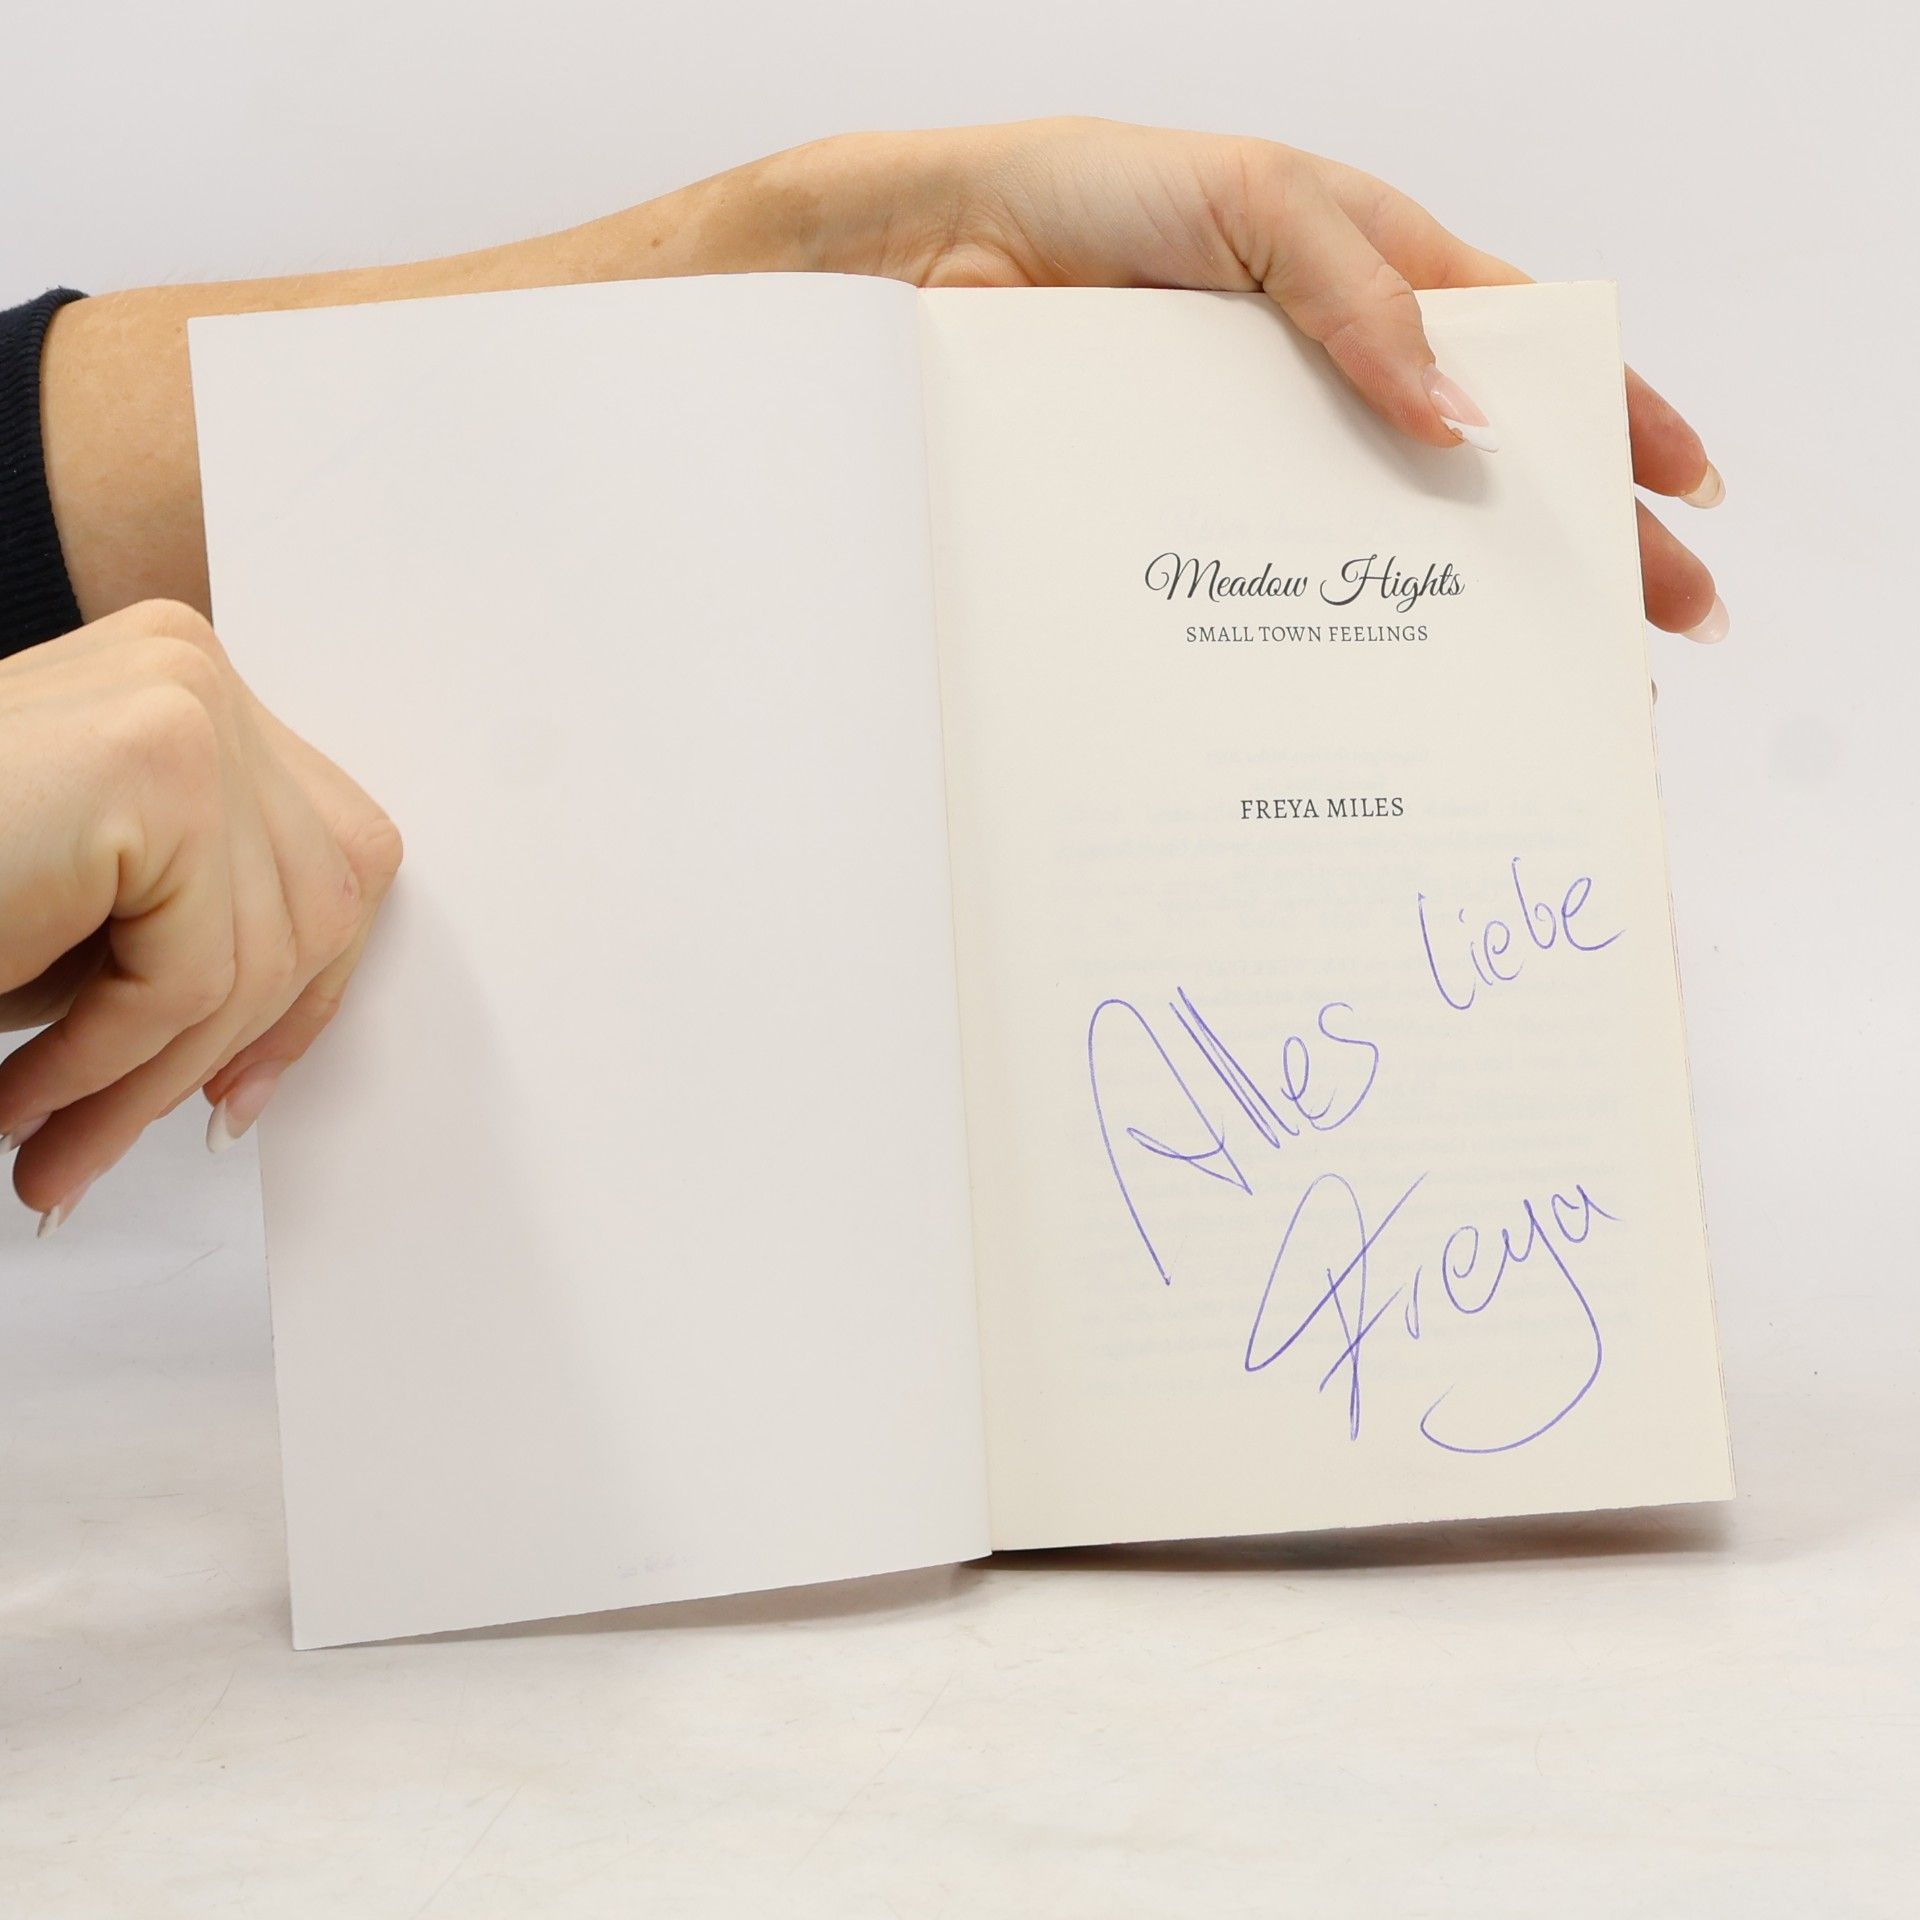 Meadow Hights
SMALL TOWN FEELINGS
FREYA MILES
Alles Liebe
Freya